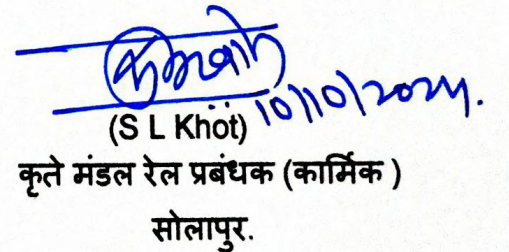 10/10/2024.
(S L Khot)
कृते मंडल रेल प्रबंधक (कार्मिक )
सोलापुर.